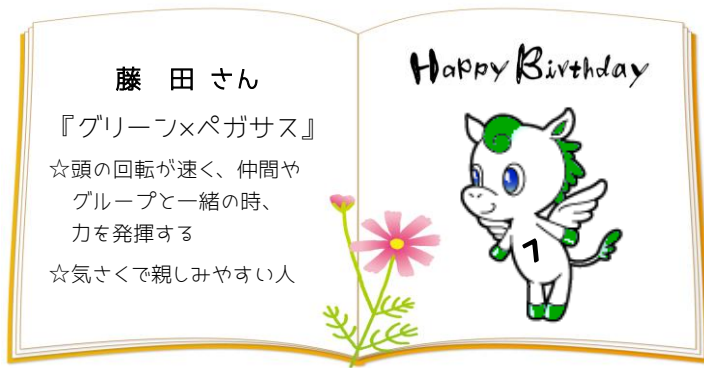 藤 田 さん
『グリーン×ペガサス』
☆頭の回転が速く、仲間や
グループと一緒の時、
力を発揮する
☆気さくで親しみやすい人
Happy Birthday
7